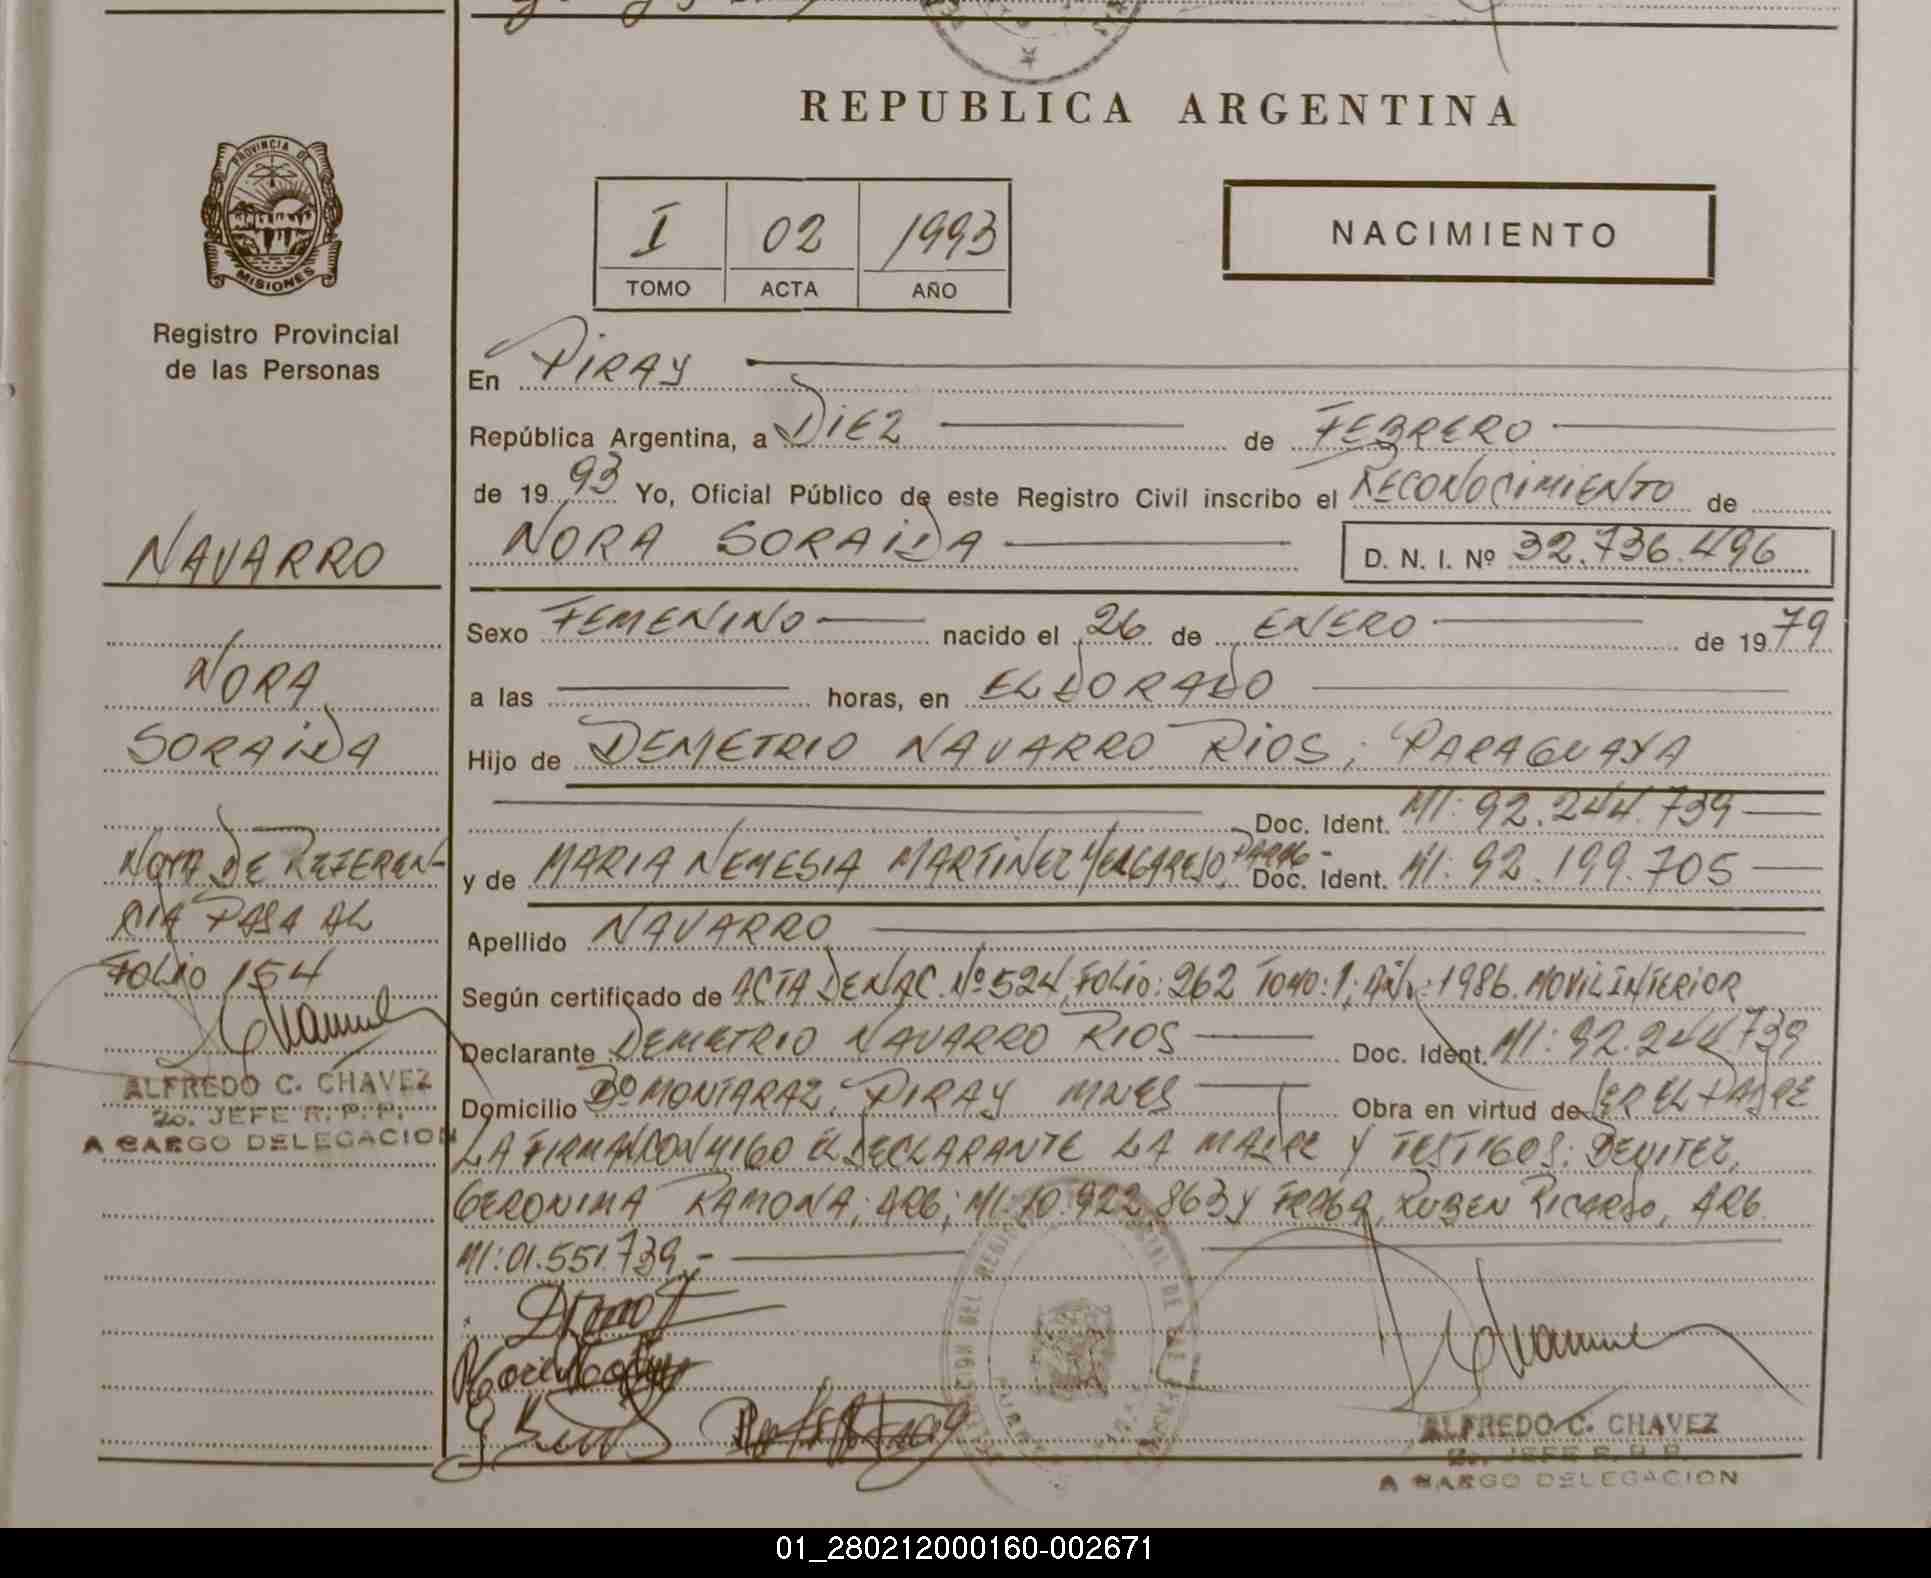 REPUBLICA ARGENTINA
PROVINCIA DE
MISIONES
Registro Provincial
de las Personas
I 02 1993
TOMO ACTA AÑO
NACIMIENTO
En PIRAY
República Argentina, a DIEZ de FEBRERO
de 19 93 Yo, Oficial Público de este Registro Civil inscribo el RECONOCIMIENTO de
NORA SORAIDA D. N. I. Nº 32.736.496
Sexo FEMENINO nacido el 26 de ENERO de 19 79
a las horas, en ELDORADO
Hijo de DEMETRIO NAVARRO RIOS; PARAGUAYA
Doc. Ident. MI: 92.244.739
y de MARIA NEMESIA MARTINEZ Doc. Ident. MI: 92.199.705
Apellido NAVARRO
Según certificado de ACTA DE NAC. Nº 524, FOLIO: 262 TOMO: 1; AÑO: 1986. MOVIL INTERIOR
Declarante DEMETRIO NAVARRO RIOS Doc. Ident. MI: 92.244.739
Domicilio Bº MONTARAZ, PIRAY MNES Obra en virtud de SER EL PADRE
LA FIRMAN CONMIGO EL DECLARANTE LA MADRE Y TESTIGOS: BENITEZ,
GERONIMA RAMONA; ARG; MI: 10.922.863 Y FRAGA, RUBEN RICARDO, ARG.
MI: 01.551.739.-
ALFREDO C. CHAVEZ
2o. JEFE R. P. P.
A CARGO DELEGACION
NAVARRO
NORA
SORAIDA
NOTA DE REFEREN-
CIA PASA AL
FOLIO 154
ALFREDO C. CHAVEZ
2o. JEFE R. P. P.
A CARGO DELEGACION
01_280212000160-002671